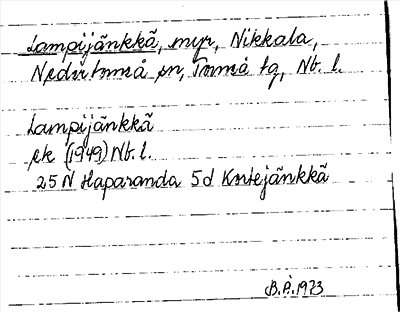 Lampijänkkä, myr, Nikkala,
Nedertorneå sn, Torneå tg, Nb. l.
Lampijänkkä
ek (1949) Nb. l.
25 N Haparanda 5d Kortejänkkä
B.P. 1973